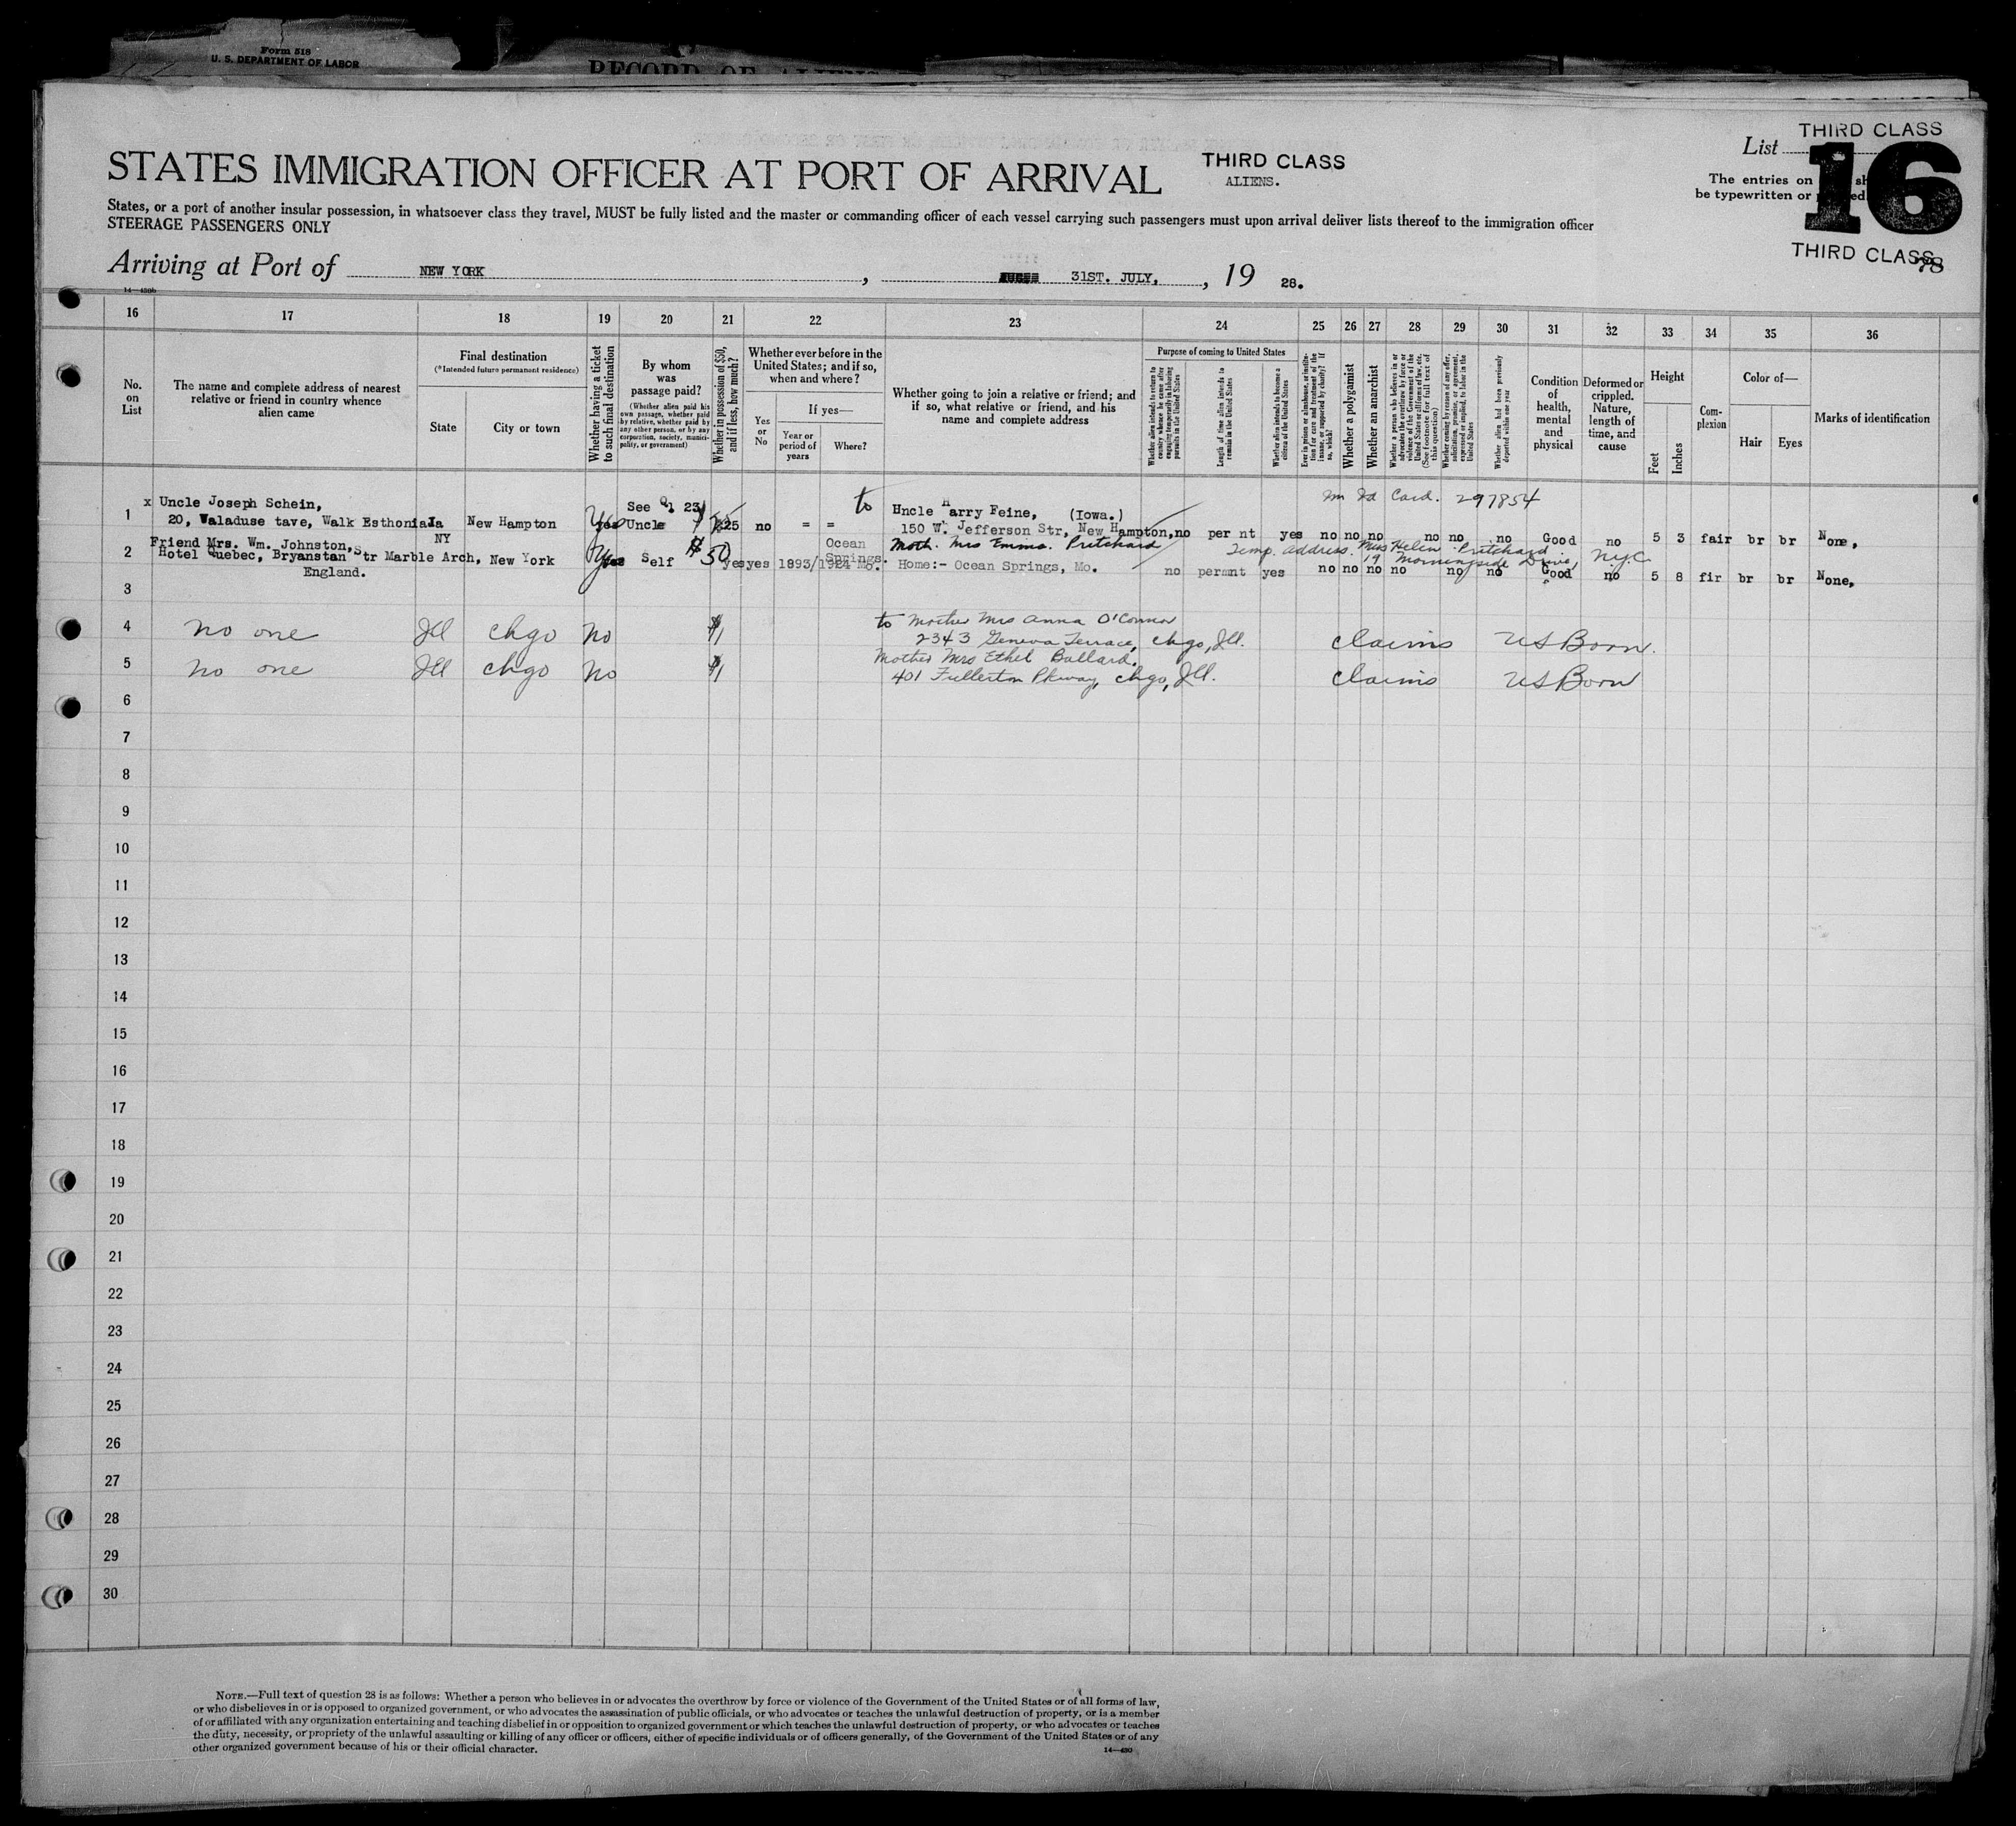 Form 518
U. S. DEPARTMENT OF LABOR
RECORD OF ALIENS
THIRD CLASS
List
16
The entries on
be typewritten or
THIRD CLASS
78
STATES IMMIGRATION OFFICER AT PORT OF ARRIVAL
THIRD CLASS
ALIENS.
States, or a port of another insular possession, in whatsoever class they travel, MUST be fully listed and the master or commanding officer of each vessel carrying such passengers must upon arrival deliver lists thereof to the immigration officer
STEERAGE PASSENGERS ONLY
Arriving at Port of NEW YORK, 31ST. JULY, , 19 28.
14—430b
16 17 18 19 20 21 22 23 24 25 26 27 28 29 30 31 32 33 34 35 36
No. on List
The name and complete address of nearest relative or friend in country whence alien came
Final destination
(*Intended future permanent residence)
State
City or town
Whether having a ticket to such final destination
By whom was passage paid?
(Whether alien paid his own passage, whether paid by relative, whether paid by any other person, or by any corporation, society, municipality, or government)
Whether in possession of $50, and if less, how much?
Whether ever before in the United States; and if so, when and where?
Yes or No
If yes—
Year or period of years
Where?
Whether going to join a relative or friend; and if so, what relative or friend, and his name and complete address
Purpose of coming to United States
Whether alien intends to return to country whence he came after engaging temporarily in laboring pursuits in the United States
Length of time alien intends to remain in the United States
Whether alien intends to become a citizen of the United States
Ever in prison or almshouse, or institution for care and treatment of the insane, or supported by charity? If so, which?
Whether a polygamist
Whether an anarchist
Whether a person who believes in or advocates the overthrow by force or violence of the Government of the United States or all forms of law, etc. (See footnote for full text of this question)
Whether coming by reason of any offer, solicitation, promise, or agreement, expressed or implied, to labor in the United States
Whether alien had been previously deported within one year
Condition of health, mental and physical
Deformed or crippled. Nature, length of time, and cause
Height
Feet
Inches
Complexion
Color of—
Hair
Eyes
Marks of identification
Im Id Card. 297854
x Uncle Joseph Schein, See Q. 23 to Hncle Harry Feine, (Iowa.)
1 20, Waladuse tave, Walk Esthonia Ia New Hampton Yes Uncle $25 no = = 150 W. Jefferson Str, New Hampton, no per nt yes no no no no no no Good no 5 3 fair br br None,
Friend Mrs. Wm. Johnston, NY Ocean Moth. Mrs Emma. Pritchard Temp. address. Miss Helen Pritchard
2 Hotel Quebec, Bryanstan Str Marble Arch, New York Yes Self $50 yes yes 1893/1924 Springs. Mo. Home:- Ocean Springs, Mo. 19 Morningside Drive, N.Y.C.
England. no permnt yes no no no no no no Good no 5 8 fir br br None,
3
to Mother Mrs Anna O'Connor
4 no one Ill Chgo No $1 2343 Geneva Terrace, Chgo, Ill. Claims US Born.
Mother Mrs Ethel Ballard.
5 no one Ill Chgo No $1 401 Fullerton Pkway, Chgo, Ill. Claims US Born
6
7
8
9
10
11
12
13
14
15
16
17
18
19
20
21
22
23
24
25
26
27
28
29
30
NOTE.—Full text of question 28 is as follows: Whether a person who believes in or advocates the overthrow by force or violence of the Government of the United States or of all forms of law,
or who disbelieves in or is opposed to organized government, or who advocates the assassination of public officials, or who advocates or teaches the unlawful destruction of property, or is a member
of or affiliated with any organization entertaining and teaching disbelief in or opposition to organized government or which teaches the unlawful destruction of property, or who advocates or teaches
the duty, necessity, or propriety of the unlawful assaulting or killing of any officer or officers, either of specific individuals or of officers generally, of the Government of the United States or of any
other organized government because of his or their official character.
14—430